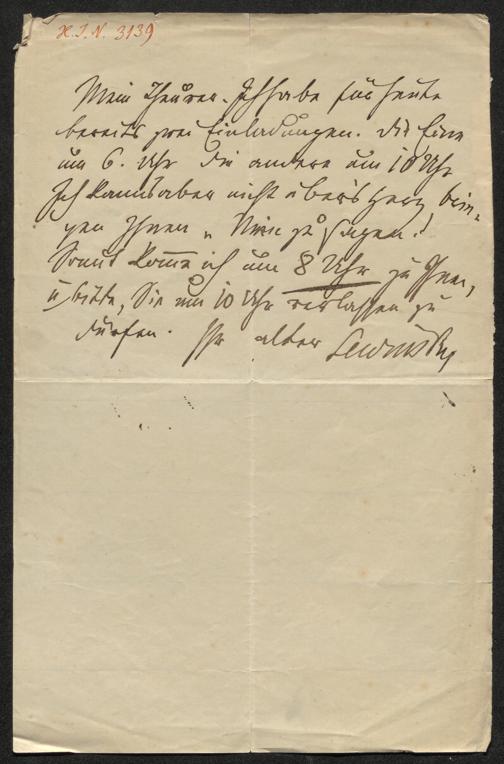 H.I.N. 3139
Mein Theurer. Ich habe für heute
bereits zwei Einladungen. Die Eine
um 6. Uhr die andere um 10 Uhr
Ich kann's aber nicht über's Herz brin-
gen Ihnen „Nein" zu sagen!
Somit kom̅e ich um 8 Uhr zu Ihnen,
u bitte, Sie um 10 Uhr verlassen zu
dürfen. Ihr alter Lewinsky